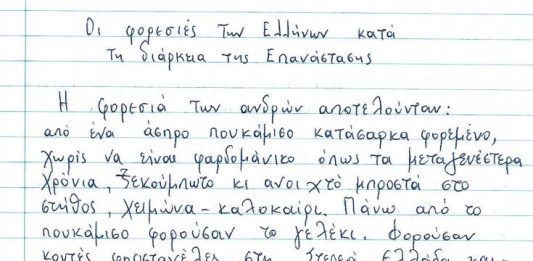 Οι φορεσιές των Ελλήνων κατά
τη διάρκεια της Επανάστασης
Η φορεσιά των ανδρών αποτελούνταν:
από ένα άσπρο πουκάμισο κατάσαρκα φορεμένο,
χωρίς να είναι φαρδομάνικο όπως τα μεταγενέστερα
χρόνια, ξεκούμπωτο κι ανοιχτό μπροστά στο
στήθος, χειμώνα-καλοκαίρι. Πάνω από το
πουκάμισο φορούσαν το γελέκι. Φορούσαν
κοντές φουστανέλες στη Στερεά Ελλάδα και